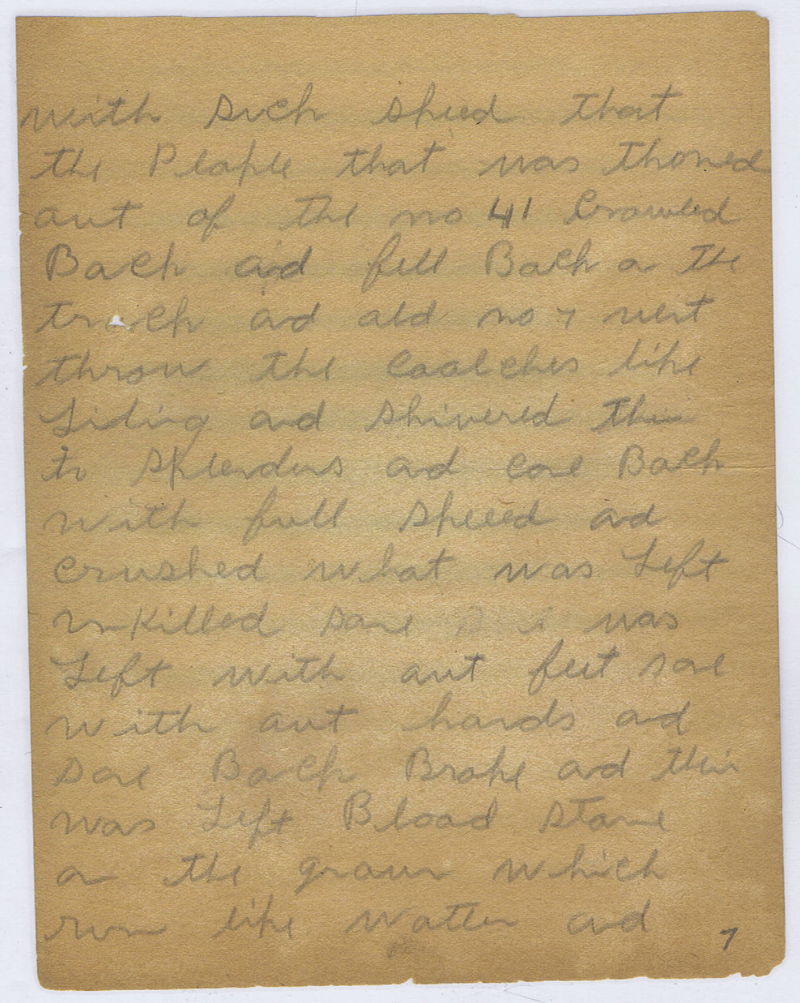 with such speed that
the Peaple that was thowed
aut of the no 41 Crawled
Bach and fell Bach a the
trach ad ald no 7 went
throw the Coalches like
Liding and shivered them
to Splenders ad cone Bach
with full Speeed ad
crushed what was Left
unKilled sone was
Left with aut feet sone
with aut hands ad
sone Bach Broke ad their
was Left Blood stane
a the graun which
run like watter and
7